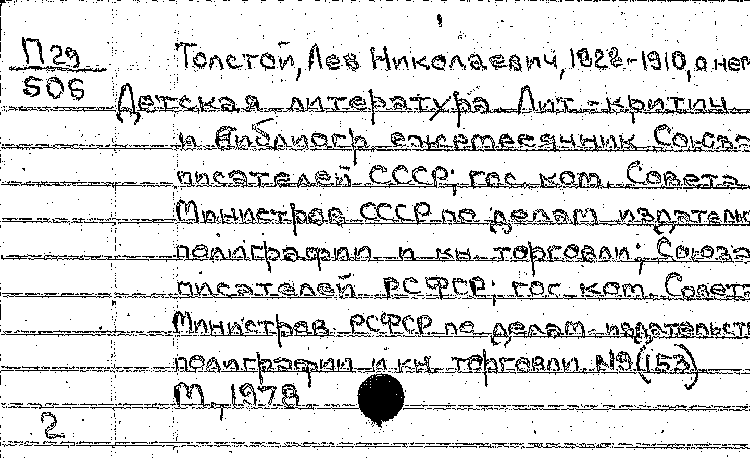 П 29
506
Толстой, Лев Николаевич, 1828-1910, о нем
Детская литература Лит.-критич
и библиогр ежемесячник Союза
писателей СССР; гос. ком. Совета
Министров СССР по делам издательс
полиграфии и кн. торговли; Союза
писателей РСФСР; гос. ком. Совета
Министров РСФСР по делам издательств
полиграфии и кн. торговли. №9(153)
М., 1978
2